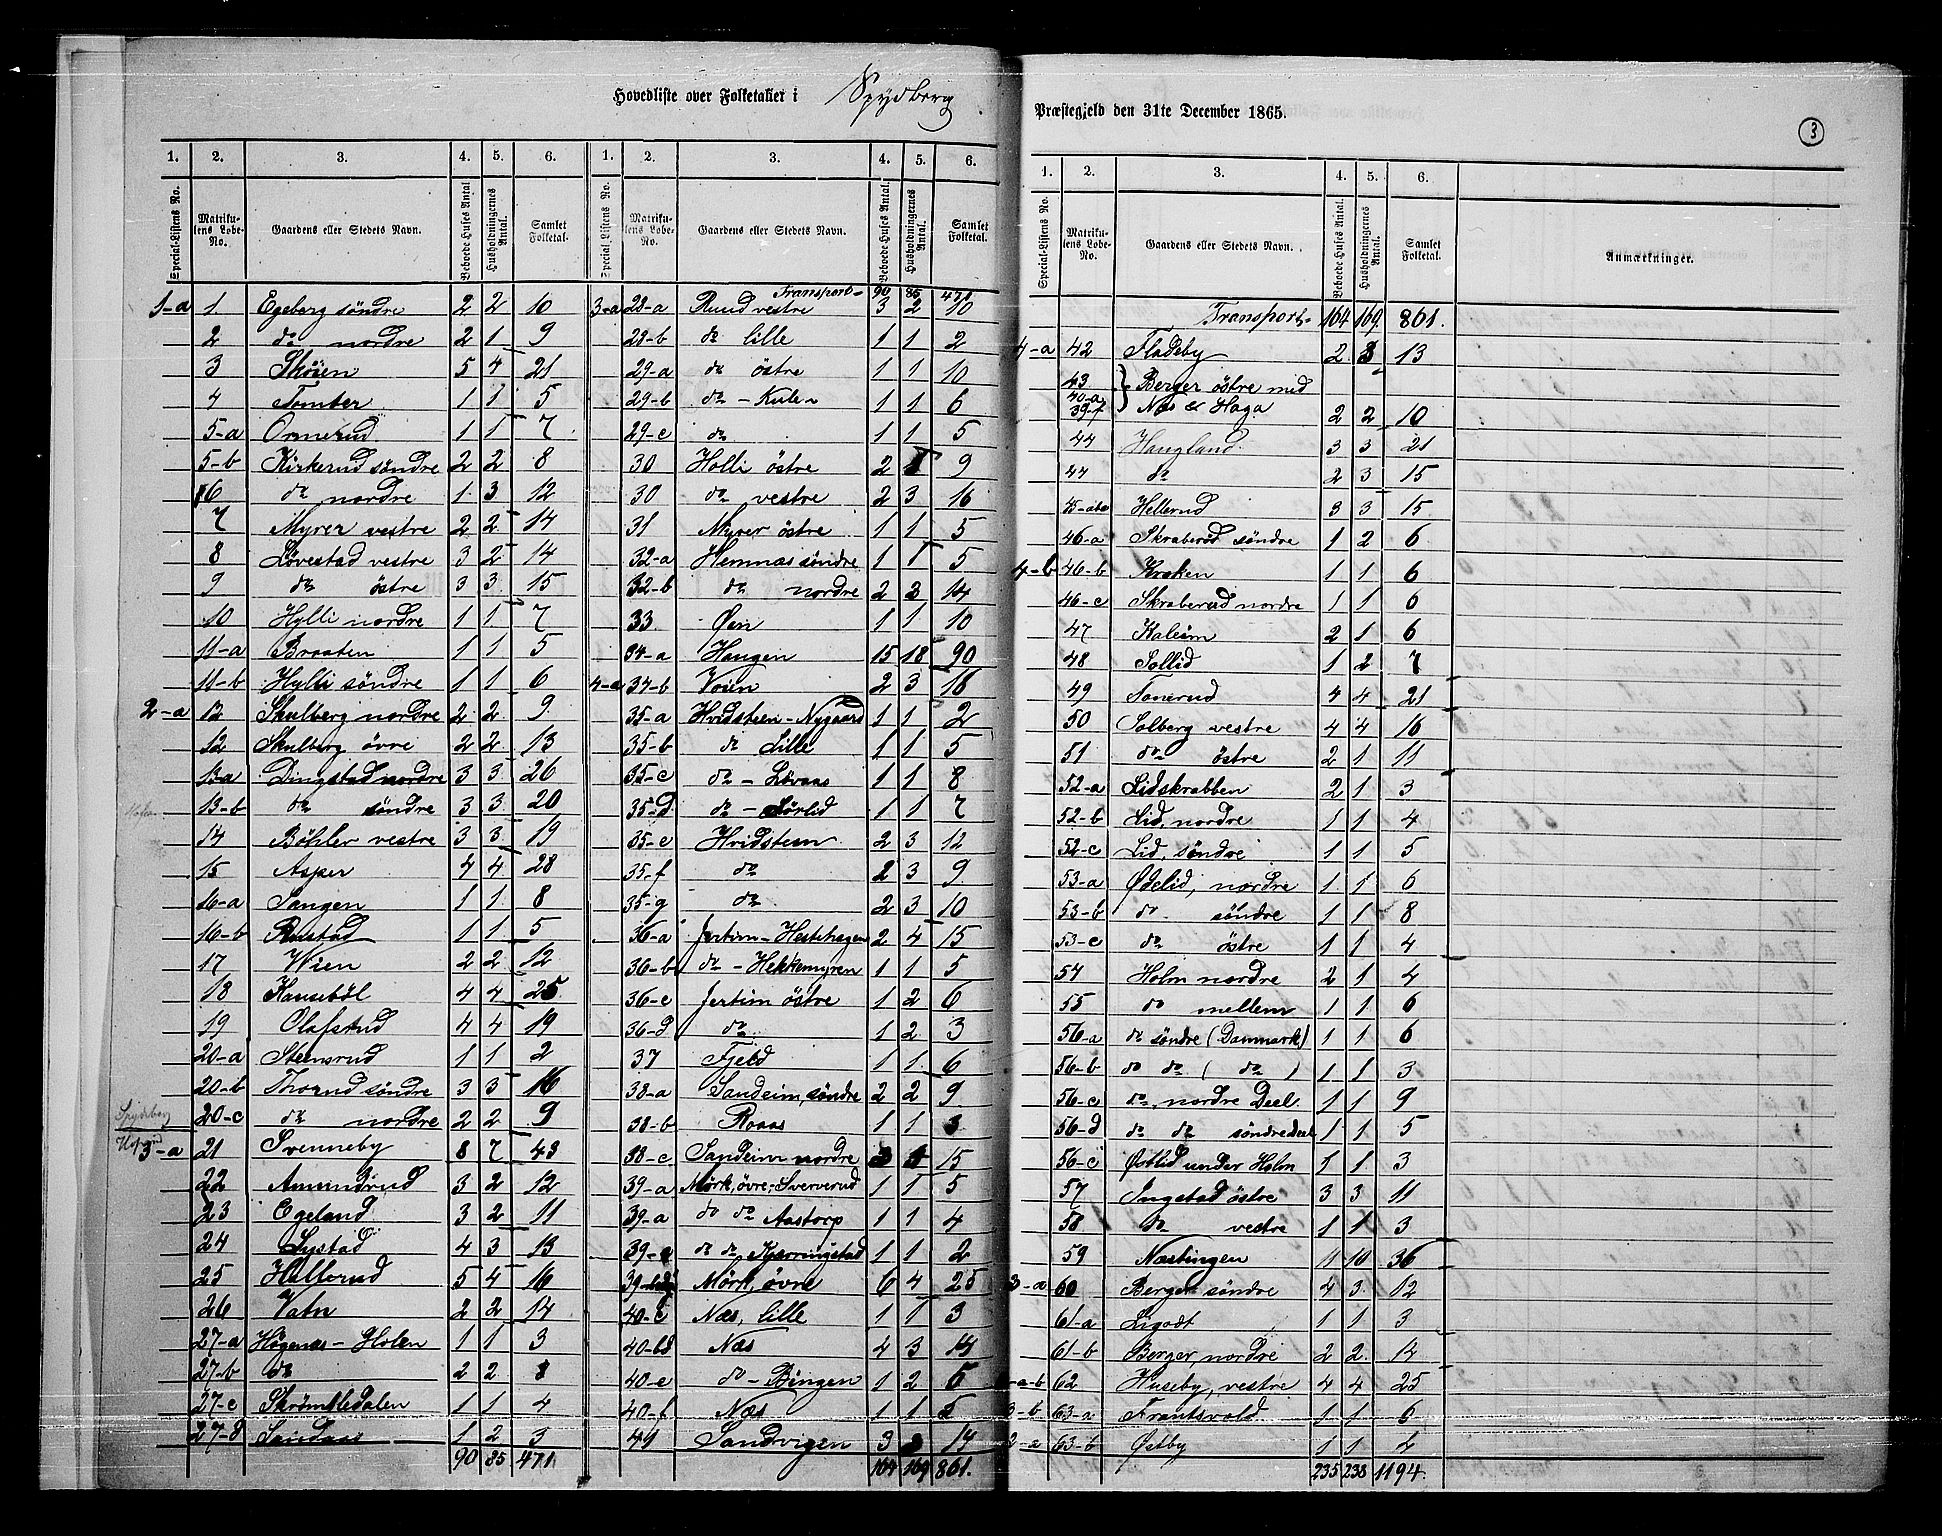 Hovedliste over Folketallet i Spydberg
Præstegjeld den 31te December 1865.
3
1. 2. 3. 4. 5. 6.
Special-Listens No. Matrikulens Løbe-No. Gaardens eller Stedets Navn. Beboede Huses Antal Husholdningernes Antal. Samlet Folketal.
1-a 1 Egeberg söndre 2 2 10
2 do nordre 2 1 9
3 Sköien 5 4 21
4 Tomter 1 1 5
5-a Ormerud 1 1 7
5-b Kirkerud söndre 2 2 8
6 do nordre 1 3 12
7 Myrer vestre 2 2 14
8 Lövestad vestre 3 2 14
9 do östre 3 3 15
10 Hylli nordre 1 1 7
11-a Braaten 1 1 5
11-b Hylli söndre 1 1 6
2-a 12 Skulberg nordre 2 2 9
12 Skulberg övre 2 2 13
13-a Dingstad nordre 3 3 26
13-b do söndre 3 3 20
14 Böhler vestre 3 3 19
15 Asper 4 4 28
16-a Tangen 1 1 8
16-b Rustad 1 1 5
17 Wien 2 2 12
18 Kauseböl 4 4 25
19 Olafsrud 4 4 19
20-a Steensrud 1 1 2
20-b Thorud söndre 3 3 16
Spydeberg
20-c do nordre 2 2 9
3-a 21 Svenneby 8 7 43
22 Amundrud 3 2 12
23 Egeland 3 2 11
24 Lystad 4 3 13
25 Hallerud 5 4 16
26 Vatn 2 2 14
27-a Högenæs-Holen 1 1 3
27-b do 2 2
27-c Skrömtedalen 1 1 4
27-d Sandaas 1 2 3
90 85 471
1. 2. 3. 4. 5. 6.
Special-Listens No. Matrikulens Løbe-No. Gaardens eller Stedets Navn. Beboede Huses Antal. Husholdningernes Antal. Samlet Folketal.
Transport 90 85 471
3-a 28-a Ruud vestre 3 2 10
28-b do lille 1 1 2
29-a do östre 1 1 10
29-b do - Kulen 1 1 6
29-c do 1 1 5
30 Holli östre 2 1 9
30 do vestre 2 3 16
31 Myrer östre 1 1 5
32-a Hemnæs söndre 1 1 5
32-b do nordre 2 3 14
33 Øen 1 1 10
34-a Haugen 15 18 90
4-a 34-b Voien 2 3 18
35-a Hvidsteen-Nygaard 1 1 2
35-b do Lille 1 1 5
35-c do - Lövaas 1 1 8
35-d do - Lörlid 1 1 7
35-e Hvidsteen 2 3 12
35-f do 2 3 9
35-g do 2 3 10
36-a Jertim-Hestehagen 2 4 15
36-b do - Hekkemyren 1 1 5
36-c Jertim östre 1 2 6
36-d do 1 2 3
37 Fjeld 1 1 6
38-a Sandeim, söndre 2 2 9
38-b Roaas 1 1 3
38-c Sandeim nordre 15
39-a Mörk, övre - Sververud 1 1 5
39-a do do Aastorp 1 1 4
39- do do Kjærringstad 1 1 2
39- Mörk, övre 6 4 25
40-c Næs, lille 1 1 3
40- Næs 4 3 14
40-e do - Bingen 1 2 6
40-f Næs 1 1 5
41 Sandvigen 3 3 14
164 169 861.
1. 2. 3. 4. 5. 6.
Special-Listens No. Matrikulens Løbe-No. Gaardens eller Stedets Navn. Beboede Huses Antal. Husholdningernes Antal. Samlet Folketal. Anmærkninger.
Transport 164 169 861.
4-a 42 Fladeby 2 3 13
43 Berger östre med
40-a
39-f Næs & Haga 2 2 10
44 Haugland 3 3 21
44 do 2 3 15
45-abc Hellerud 3 3 15
46-a Skraberöd söndre 1 2 6
4-b 46-b Kroken 1 1 6
46-c Skraberud nordre 1 1 6
47 Kaleim 2 1 6
48 Sollid 1 2 7
49 Tanerud 4 4 21
50 Solberg vestre 4 4 16
51 do östre 2 1 11
52-a Lidskrabben 2 1 3
52-b Lid, nordre 1 1 4
52-c Lid, söndre 1 1 5
53-a Ødelid, nordre 1 1 6
53-b do söndre 1 1 8
53-c do östre 1 1 4
54 Holm nordre 2 1 4
55 do mellem 1 1 6
56-a do söndre (Danmark) 1 1 6
56-b do do (do) 1 1 3
56-c do, nordre Deel 1 1 9
56-d do do söndre Deel 1 1 5
56-e Östlid under Holm 1 1 3
57 Ingstad östre 3 3 11
58 do vestre 1 1 3
59 Næstingen 11 10 36
3-a 60 Berger söndre 4 3 12
61-a Ligodt 1 1 3
61-b Berger, nordre 2 2 14
-a-b 62 Huseby, vestre 4 4 25
3-b 63-a Frantsvold 1 1 6
2-a 63-b Østby 1 1 4
235 238 1194